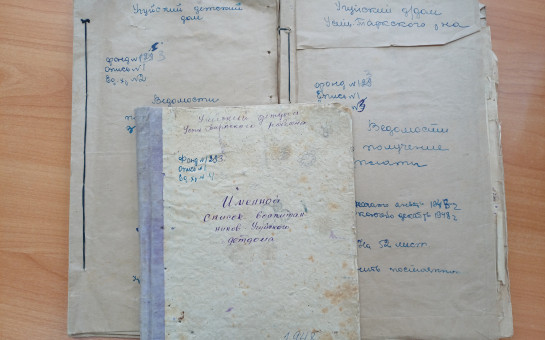 Угуйский детский
дом
фонд №183
опись №1
ед. хр. №2
Ведомости
Угуйский д/дом
Усть-Таркского р/на
фонд №183
опись №1
№3
Ведомости
получение
1948 г
декабрь 1948 г
52 лист
Усть-Таркского района
фонд №183
опись №1
ед. хр. №
Именной
список воспитан
ников Угуйского
детдома
1948